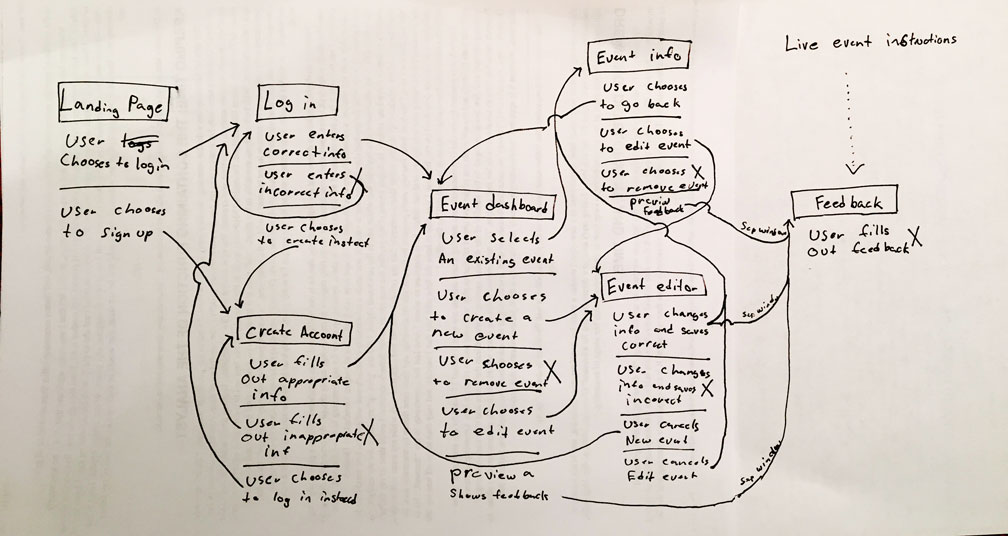 Landing Page
User logs
Chooses to login
User chooses
to sign up
Log in
User enters
correct info
User enters
incorrect info
User chooses
to create instead
Create Account
User fills
Out appropriate
info
User fills
Out inappropriate X
inf
User chooses
to log in instead
Event dashboard
User selects
An existing event
User chooses
to create a
new event
User shooses
to remove event X
User chooses
to edit event
preview a
Shows feedback
Event info
User chooses
to go back
User chooses
to edit event
User chooses X
to remove event
Feedback
Event editor
User changes
info and saves
correct
User changes
info and saves X
incorect
User cancels
New event
User cancels
Edit event
Sep window
Sep window
Sep window
Live event instructions
Feedback
User fills
Out feedback X